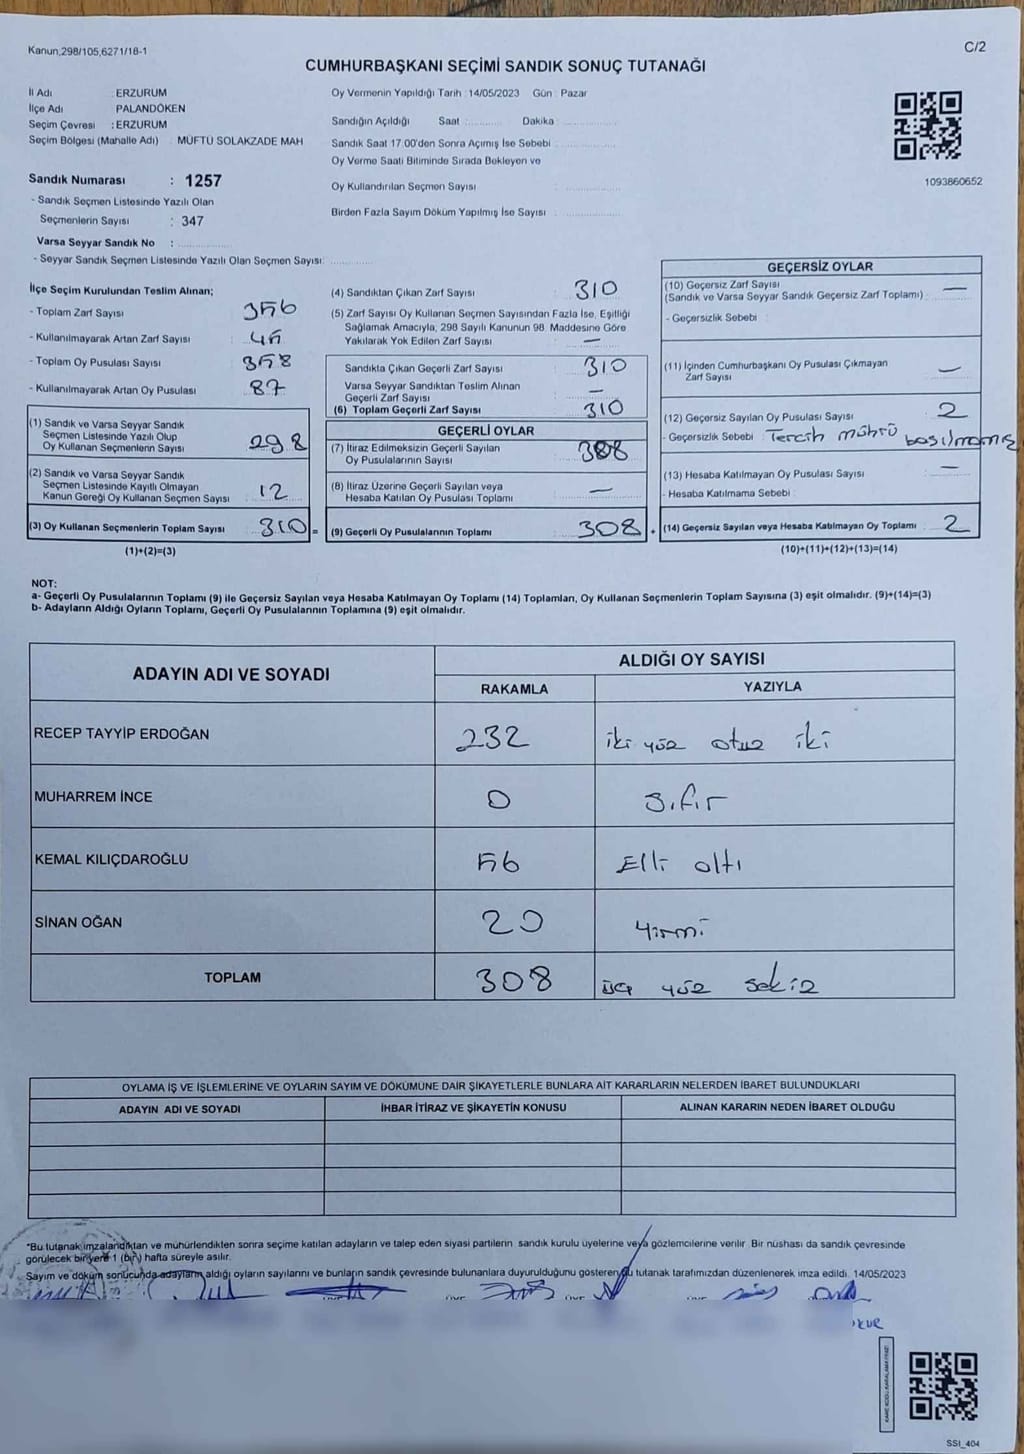 Kanun,298/105,6271/18-1
C/2
CUMHURBAŞKANI SEÇİMİ SANDIK SONUÇ TUTANAĞI
İl Adı : ERZURUM
İlçe Adı : PALANDÖKEN
Seçim Çevresi : ERZURUM
Seçim Bölgesi (Mahalle Adı) : MÜFTÜ SOLAKZADE MAH
Sandık Numarası : 1257
- Sandık Seçmen Listesinde Yazılı Olan
Seçmenlerin Sayısı : 347
Varsa Seyyar Sandık No : ..............
- Seyyar Sandık Seçmen Listesinde Yazılı Olan Seçmen Sayısı: ............
Oy Vermenin Yapıldığı Tarih : 14/05/2023 Gün : Pazar
Sandığın Açıldığı Saat : .......... Dakika : ..............
Sandık Saat 17:00'den Sonra Açımış İse Sebebi : ..............
Oy Verme Saati Bitiminde Sırada Bekleyen ve
Oy Kullandırılan Seçmen Sayısı : ..............
Birden Fazla Sayım Döküm Yapılmış İse Sayısı : ..............
1093860652
İlçe Seçim Kurulundan Teslim Alınan;
- Toplam Zarf Sayısı 356
- Kullanılmayarak Artan Zarf Sayısı
- Toplam Oy Pusulası Sayısı 358
- Kullanılmayarak Artan Oy Pusulası 87
(1) Sandık ve Varsa Seyyar Sandık
Seçmen Listesinde Yazılı Olup
Oy Kullanan Seçmenlerin Sayısı 298
(2) Sandık ve Varsa Seyyar Sandık
Seçmen Listesinde Kayıtlı Olmayan
Kanun Gereği Oy Kullanan Seçmen Sayısı 12
(3) Oy Kullanan Seçmenlerin Toplam Sayısı 310 =
(1)+(2)=(3)
(4) Sandıktan Çıkan Zarf Sayısı 310
(5) Zarf Sayısı Oy Kullanan Seçmen Sayısından Fazla İse, Eşitliği
Sağlamak Amacıyla, 298 Sayılı Kanunun 98. Maddesine Göre
Yakılarak Yok Edilen Zarf Sayısı —
Sandıkta Çıkan Geçerli Zarf Sayısı 310
Varsa Seyyar Sandıktan Teslim Alınan
Geçerli Zarf Sayısı —
(6) Toplam Geçerli Zarf Sayısı 310
GEÇERLİ OYLAR
(7) İtiraz Edilmeksizin Geçerli Sayılan
Oy Pusulalarının Sayısı 308
(8) İtiraz Üzerine Geçerli Sayılan veya
Hesaba Katılan Oy Pusulası Toplamı —
(9) Geçerli Oy Pusulalarının Toplamı 308 +
GEÇERSİZ OYLAR
(10) Geçersiz Zarf Sayısı —
(Sandık ve Varsa Seyyar Sandık Geçersiz Zarf Toplamı)
- Geçersizlik Sebebi :
(11) İçinden Cumhurbaşkanı Oy Pusulası Çıkmayan
Zarf Sayısı —
(12) Geçersiz Sayılan Oy Pusulası Sayısı 2
- Geçersizlik Sebebi : Tercih mührü basılmamış
(13) Hesaba Katılmayan Oy Pusulası Sayısı —
- Hesaba Katılmama Sebebi :
(14) Geçersiz Sayılan veya Hesaba Katılmayan Oy Toplamı 2
(10)+(11)+(12)+(13)=(14)
NOT:
a- Geçerli Oy Pusulalarının Toplamı (9) ile Geçersiz Sayılan veya Hesaba Katılmayan Oy Toplamı (14) Toplamları, Oy Kullanan Seçmenlerin Toplam Sayısına (3) eşit olmalıdır. (9)+(14)=(3)
b- Adayların Aldığı Oyların Toplamı, Geçerli Oy Pusulalarının Toplamına (9) eşit olmalıdır.
ADAYIN ADI VE SOYADI
ALDIĞI OY SAYISI
RAKAMLA YAZIYLA
RECEP TAYYİP ERDOĞAN 232 iki yüz otuz iki
MUHARREM İNCE 0 Sıfır
KEMAL KILIÇDAROĞLU 56 Elli altı
SİNAN OĞAN 20 Yirmi
TOPLAM 308 üç yüz sekiz
OYLAMA İŞ VE İŞLEMLERİNE VE OYLARIN SAYIM VE DÖKÜMÜNE DAİR ŞİKAYETLERLE BUNLARA AİT KARARLARIN NELERDEN İBARET BULUNDUKLARI
ADAYIN ADI VE SOYADI İHBAR İTİRAZ VE ŞİKAYETİN KONUSU ALINAN KARARIN NEDEN İBARET OLDUĞU
*Bu tutanak imzalandıktan ve mühürlendikten sonra seçime katılan adayların ve talep eden siyasi partilerin sandık kurulu üyelerine veya gözlemcilerine verilir. Bir nüshası da sandık çevresinde
görülecek bir yere 1 (bir) hafta süreyle asılır.
Sayım ve döküm sonucunda adayların aldığı oyların sayılarını ve bunların sandık çevresinde bulunanlara duyurulduğunu gösteren bu tutanak tarafımızdan düzenlenerek imza edildi. 14/05/2023
SSI_404